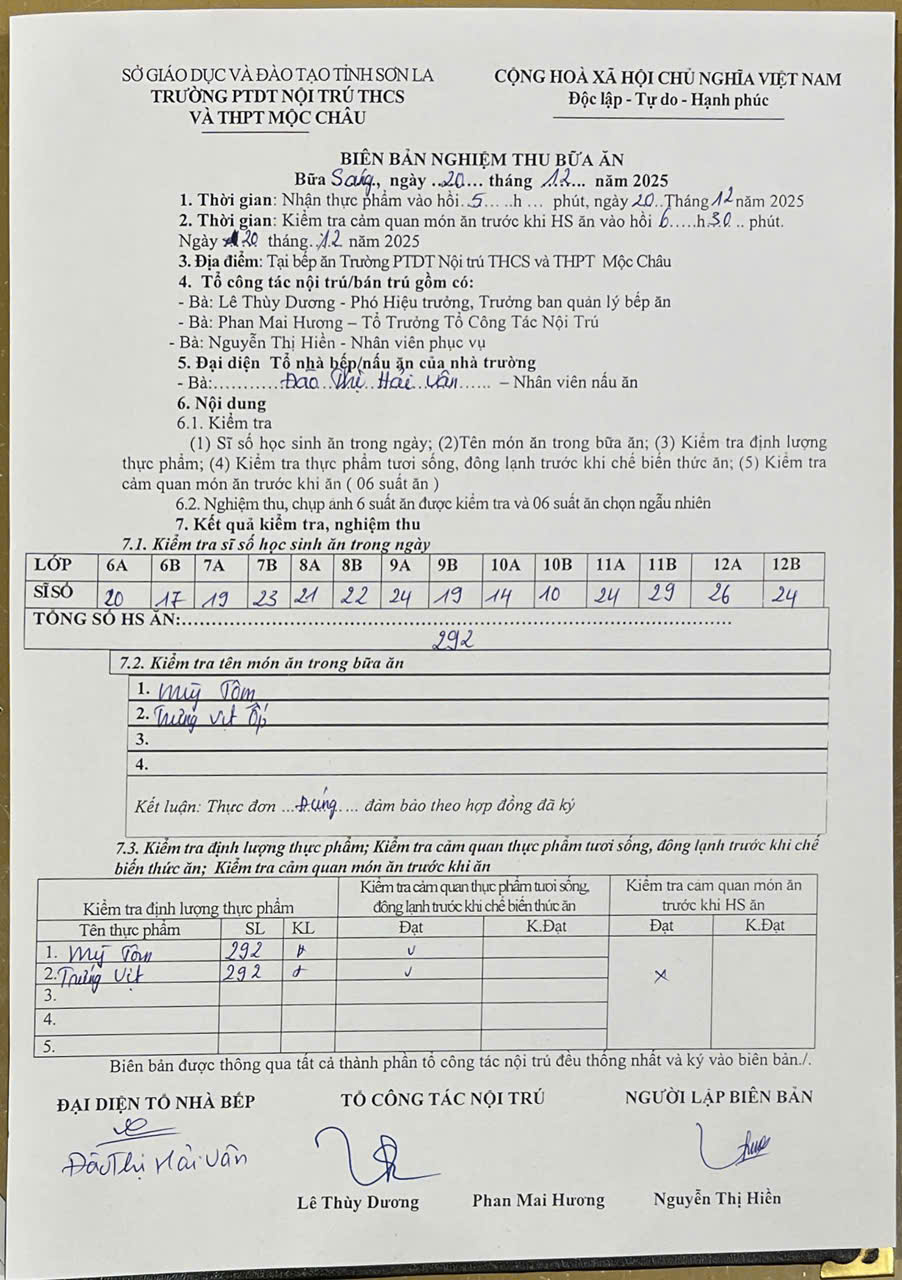 SỞ GIÁO DỤC VÀ ĐÀO TẠO TỈNH SƠN LA
TRƯỜNG PTDT NỘI TRÚ THCS
VÀ THPT MỘC CHÂU
CỘNG HOÀ XÃ HỘI CHỦ NGHĨA VIỆT NAM
Độc lập - Tự do - Hạnh phúc
BIÊN BẢN NGHIỆM THU BỮA ĂN
Bữa Sáng, ngày ..20... tháng .12... năm 2025
1. Thời gian: Nhận thực phẩm vào hồi..5... ..h ... phút, ngày 20..Tháng 12 năm 2025
2. Thời gian: Kiểm tra cảm quan món ăn trước khi HS ăn vào hồi 6.....h.30.. phút.
Ngày 20 tháng..12 năm 2025
3. Địa điểm: Tại bếp ăn Trường PTDT Nội trú THCS và THPT Mộc Châu
4. Tổ công tác nội trú/bán trú gồm có:
- Bà: Lê Thùy Dương - Phó Hiệu trưởng, Trưởng ban quản lý bếp ăn
- Bà: Phan Mai Hương – Tổ Trưởng Tổ Công Tác Nội Trú
- Bà: Nguyễn Thị Hiền - Nhân viên phục vụ
5. Đại diện Tổ nhà bếp/nấu ăn của nhà trường
- Bà:...........Đào Thị Hải Vân...... – Nhân viên nấu ăn
6. Nội dung
6.1. Kiểm tra
(1) Sĩ số học sinh ăn trong ngày; (2)Tên món ăn trong bữa ăn; (3) Kiểm tra định lượng
thực phẩm; (4) Kiểm tra thực phẩm tươi sống, đông lạnh trước khi chế biến thức ăn; (5) Kiểm tra
cảm quan món ăn trước khi ăn ( 06 suất ăn )
6.2. Nghiệm thu, chụp ảnh 6 suất ăn được kiểm tra và 06 suất ăn chọn ngẫu nhiên
7. Kết quả kiểm tra, nghiệm thu
7.1. Kiểm tra sĩ số học sinh ăn trong ngày
LỚP 6A 6B 7A 7B 8A 8B 9A 9B 10A 10B 11A 11B 12A 12B
SĨ SỐ 20 17 19 23 21 22 24 19 14 10 24 29 26 24
TỔNG SỐ HS ĂN:..............................
292
7.2. Kiểm tra tên món ăn trong bữa ăn
1. Mỹ Tôm
2. Trứng Vịt Ốp
3.
4.
Kết luận: Thực đơn ...Đúng.... đảm bảo theo hợp đồng đã ký
7.3. Kiểm tra định lượng thực phẩm; Kiểm tra cảm quan thực phẩm tươi sống, đông lạnh trước khi chế
biến thức ăn; Kiểm tra cảm quan món ăn trước khi ăn
Kiểm tra định lượng thực phẩm
Kiểm tra cảm quan thực phẩm tươi sống,
đông lạnh trước khi chế biến thức ăn
Kiểm tra cảm quan món ăn
trước khi HS ăn
Tên thực phẩm SL KL Đạt K.Đạt Đạt K.Đạt
1. Mỹ Tôm 292 v
2. Trứng Vịt 292 v x
3.
4.
5.
Biên bản được thông qua tất cả thành phần tổ công tác nội trú đều thống nhất và ký vào biên bản./.
ĐẠI DIỆN TỔ NHÀ BẾP TỔ CÔNG TÁC NỘI TRÚ NGƯỜI LẬP BIÊN BẢN
Đào Thị Hải Vân
Lê Thùy Dương Phan Mai Hương Nguyễn Thị Hiền